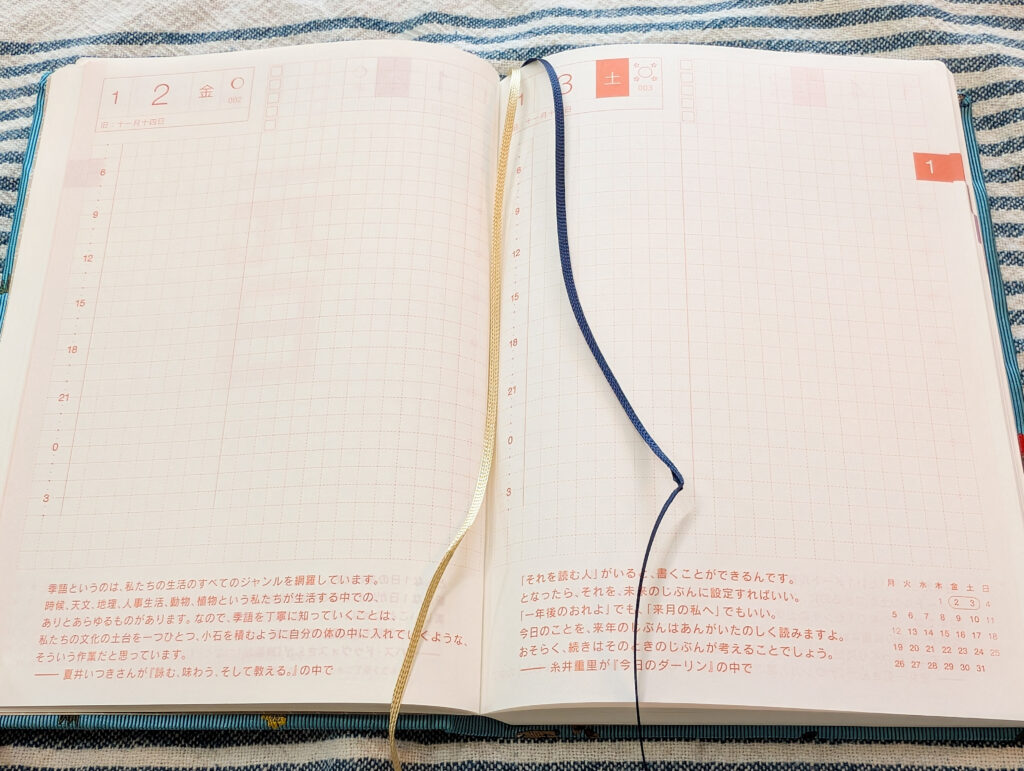 1 2 金
002
旧：十一月十四日
6
9
12
15
18
21
0
3
季語というのは、私たちの生活のすべてのジャンルを網羅しています。
時候、天文、地理、人事生活、動物、植物という私たちが生活する中での、
ありとあらゆるものがあります。なので、季語を丁寧に知っていくことは、
私たちの文化の土台を一つひとつ、小石を積むように自分の体の中に入れていくような、
そういう作業だと思っています。
―― 夏井いつきさんが『詠む、味わう、そして教える。』の中で
1 3 土
003
1
6
9
12
15
18
21
0
3
「それを読む人」がいると、書くことができるんです。
となったら、それを、未来のじぶんに設定すればいい。
「一年後のおれよ」でも、「来月の私へ」でもいい。
今日のことを、来年のじぶんはあんがいたのしく読みますよ。
おそらく、続きはそのときのじぶんが考えることでしょう。
―― 糸井重里が『今日のダーリン』の中で
月 火 水 木 金 土 日
1 2 3 4
5 6 7 8 9 10 11
12 13 14 15 16 17 18
19 20 21 22 23 24 25
26 27 28 29 30 31